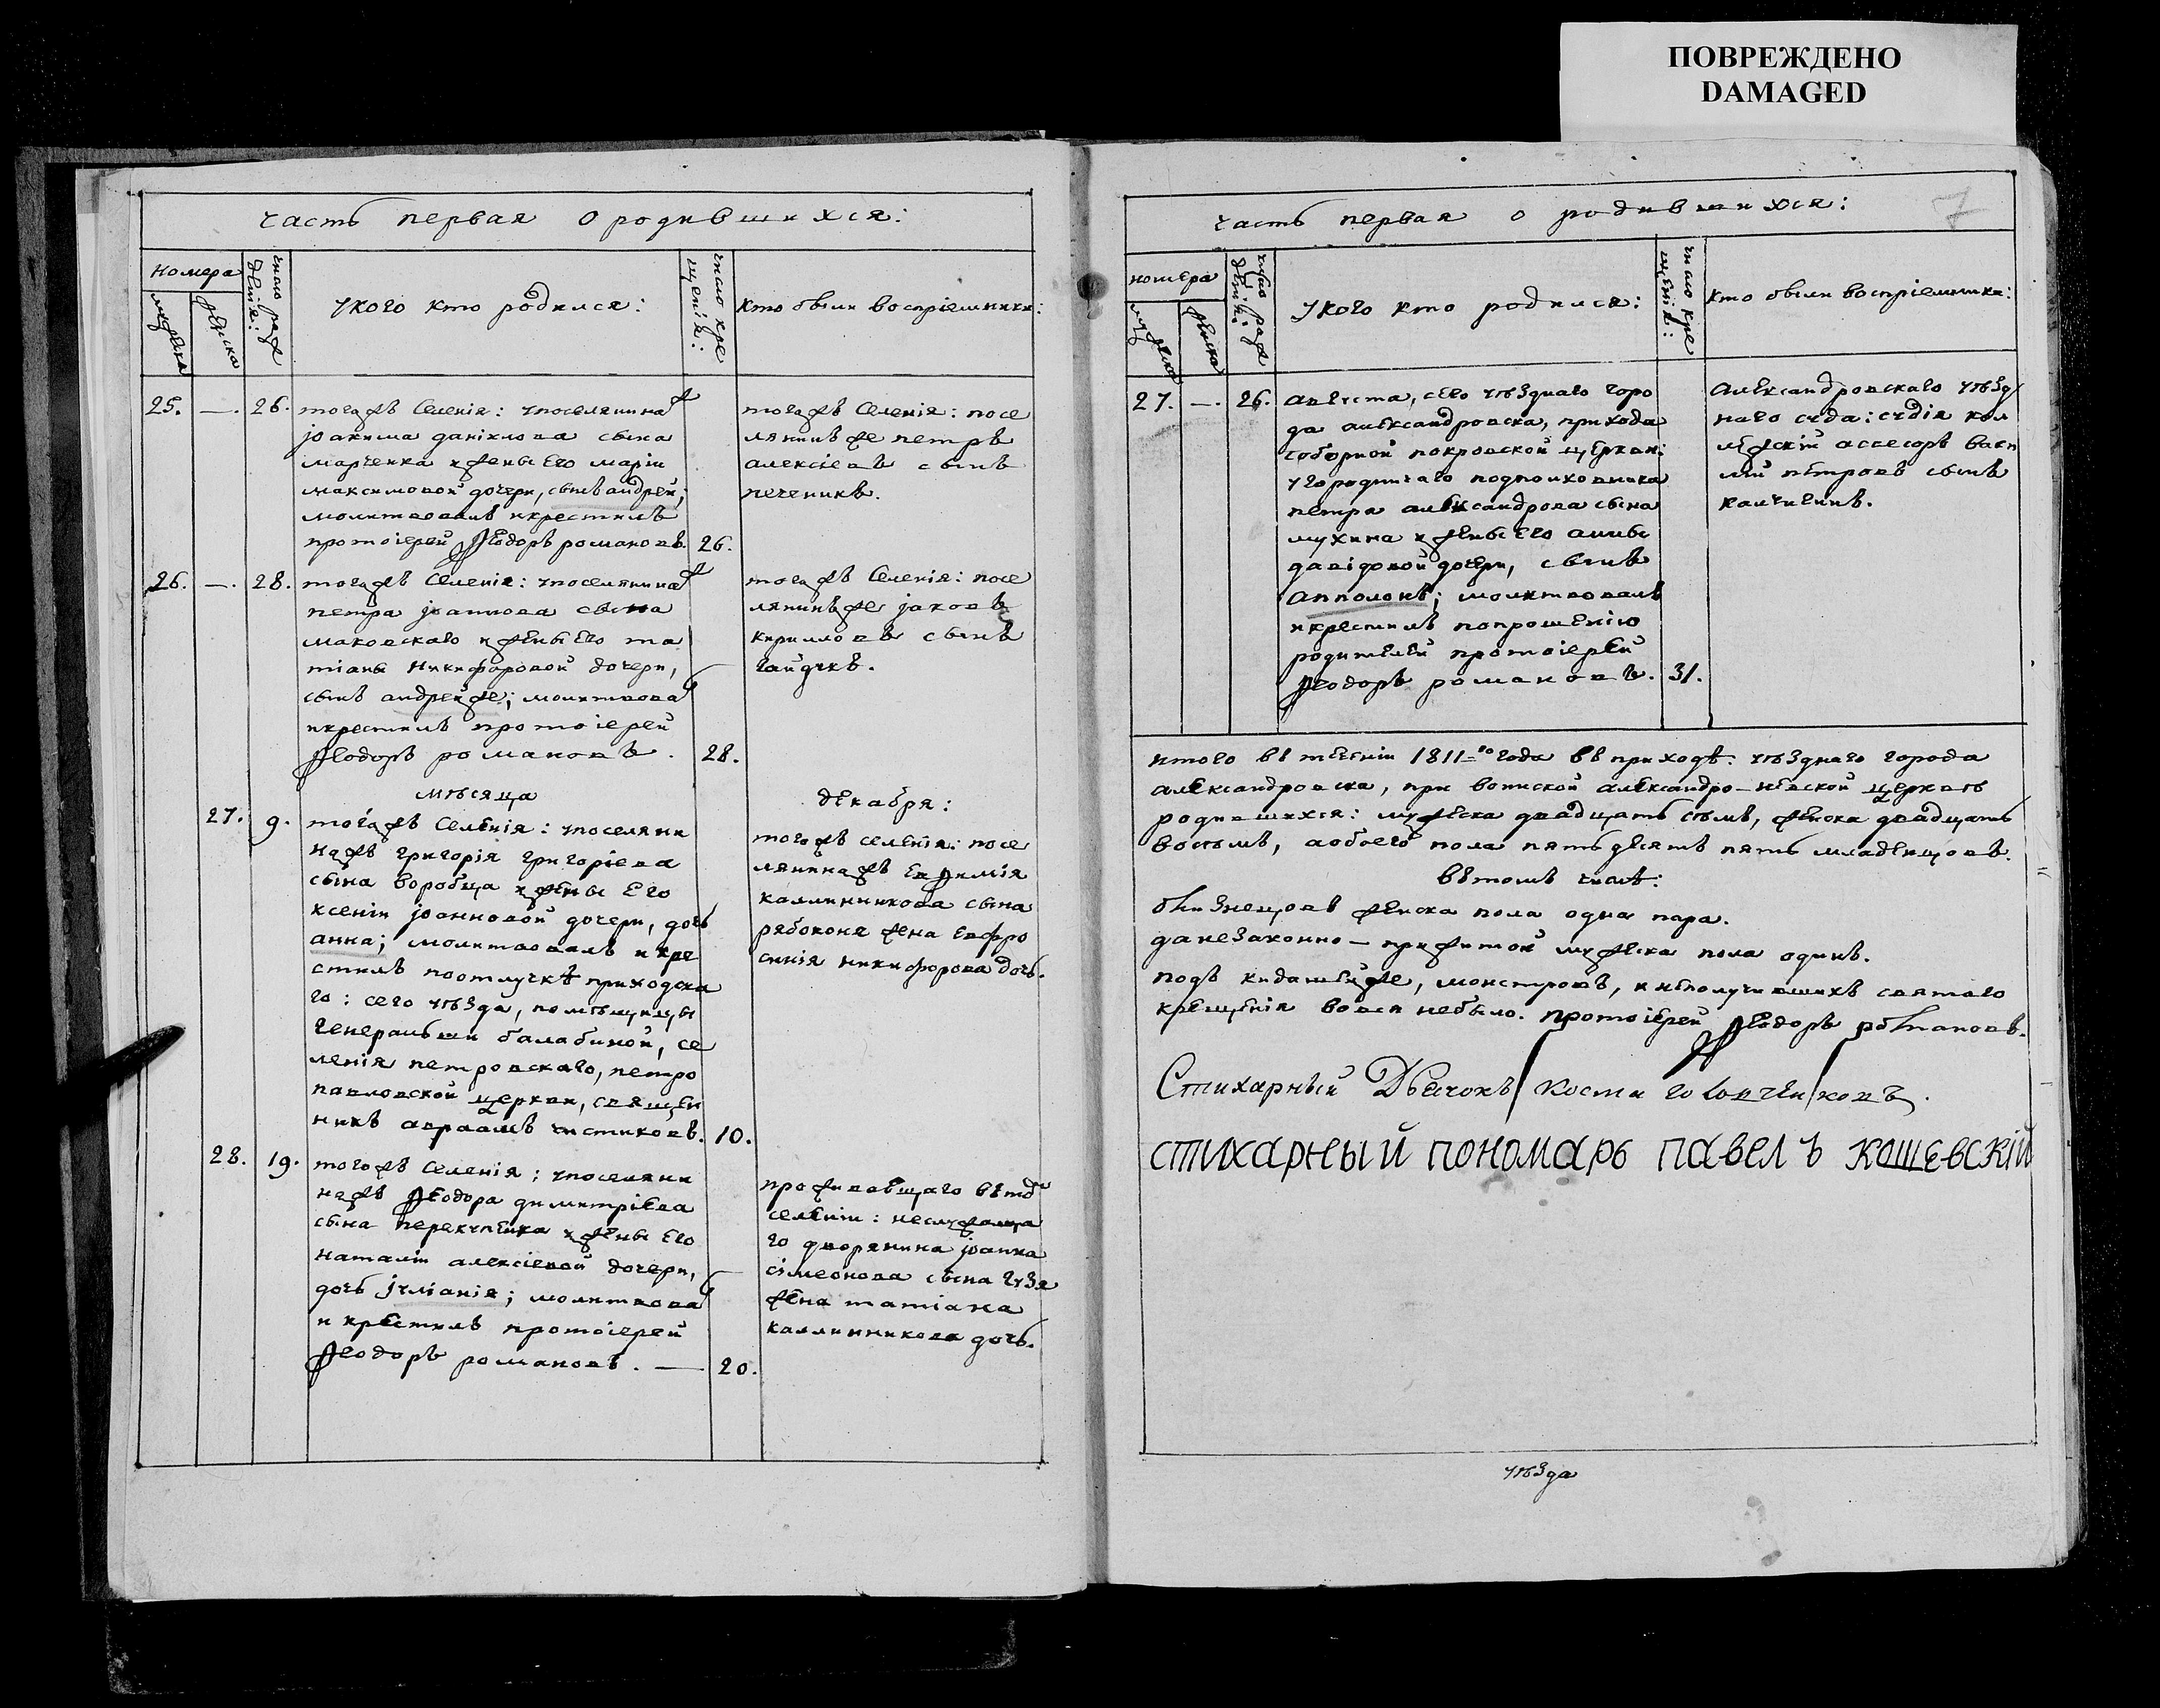 ПОВРЕЖДЕНО
DAMAGED
часть первая о родившихся:
номера
мужеска
женска
число рож
денія:
у кого кто родился:
число кре
щенія:
кто были воспріемники:
25. —. 26. тогожъ селенія: у поселянинаж
іоакима даніилова сына
марченка и жены его маріи
максимовой дочери, сынъ андрей;
молитвовалъ и крестилъ
протоіерей Ѳеодоръ романовъ. 26.
тогожъ селенія: посе
лянинъ же петръ
алексіевъ сынъ
печеникъ.
26. —. 28. тогожъ селенія: у поселянинаж
петра іоаннова сына
маковскаго и жены его та
тіаны никифоровой дочери,
сынъ андрей же; молитвова
и крестилъ протоіерей
Ѳеодоръ романовъ. 28.
тогожъ селенія: посе
лянинъ же іаковъ
кирилловъ сынъ
гайдукъ.
мѣсяца декабря:
27. 9. тогожъ селенія: у поселяни
нажъ григорія григоріева
сына воробца и жены его
ксеніи іоанновой дочери, дочь
анна; молитвовалъ и кре
стилъ по отлучкѣ приходска
го: сего уѣзда, помѣщицы
генеральши балабиной, се
ленія петровскаго, петро
павловской церкви, священ
никъ авраамъ чистиковъ. 10.
тогожъ селенія: посе
лянинажъ евѳимія
каллинникова сына
рябоконя жена евфро
синія никифорова дочь.
28. 19. тогожъ селенія; у поселяни
нажъ Ѳеодора димитріева
сына перекупенка и жены его
наталіи алексіевой дочери,
дочь іуліанія; молитвова
и крестилъ протоіерей
Ѳеодоръ романовъ. — 20.
проживавщаго въ томъ
селеніи: неслужаща
го дворянина іоанна
сімеонова сына гузя
жена татіана
каллинникова дочь.
часть первая о родившихся: 7
номера
мужеска
женска
число рож
денія:
у кого кто родился:
число кре
щенія:
кто были воспріемники:
27. —. 26. августа, сего уѣзднаго горо
да александровска, прихода
соборной покровской церкви:
у городничаго подполковника
петра александрова сына
мухина и жены его анны
давідовой дочери, сынъ
апполонъ; молитвовалъ
и крестилъ по прошенію
родителей протоіерей
Ѳеодоръ романовъ. 31.
александровскаго уѣзд
наго суда: судія кол
лѣжскій ассесоръ васи
лій петровъ сынъ
калчигинъ.
итого въ теченіи 1811-го года въ приходѣ: уѣзднаго города
александровска, при воинской александро-невской церквѣ
родившихся: мужеска двадцать сѣмъ, женска двадцать
восѣмъ, а обоего пола пятьдесятъ пять младенцовъ.
въ томъ числѣ:
близнецовъ женска пола одна пара.
да незаконно — прижитой мужеска пола одинъ.
подъ кидашей же, монстровъ, и неполучившихъ святаго
крещенія вовся небыло. протоіерей Ѳеодоръ романовъ.
Стихарный Дьячокъ Костинъ головченковъ.
стихарный пономарь павелъ кощевскій
уѣзда